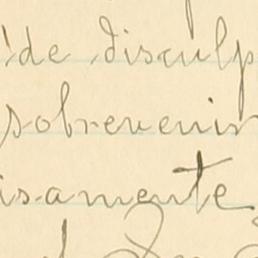 de disculp
sobrevenir
isamente